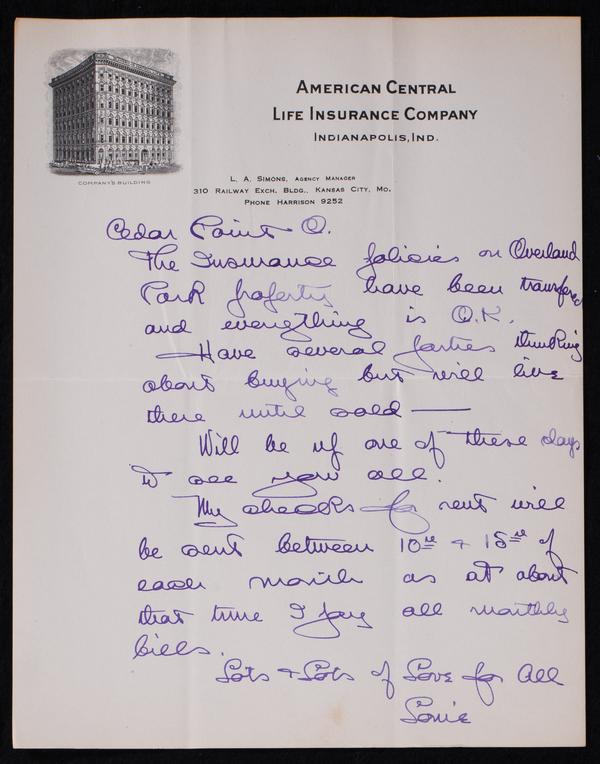 AMERICAN CENTRAL
LIFE INSURANCE COMPANY
INDIANAPOLIS, IND.
COMPANY'S BUILDING
L. A. SIMONS, AGENCY MANAGER
310 RAILWAY EXCH. BLDG., KANSAS CITY, MO.
PHONE HARRISON 9252
Cedar Point O.
The Insurance policies on Overland
Park property have been transfered
and everything is O.K.
Have several parties thinking
about buying but will live
there until sold —
Will be up one of these days
to see you all.
My checks for rent will
be sent between 10th + 15th of
each month as at about
that time I pay all monthly
bills.
Lots + Lots of Love for All